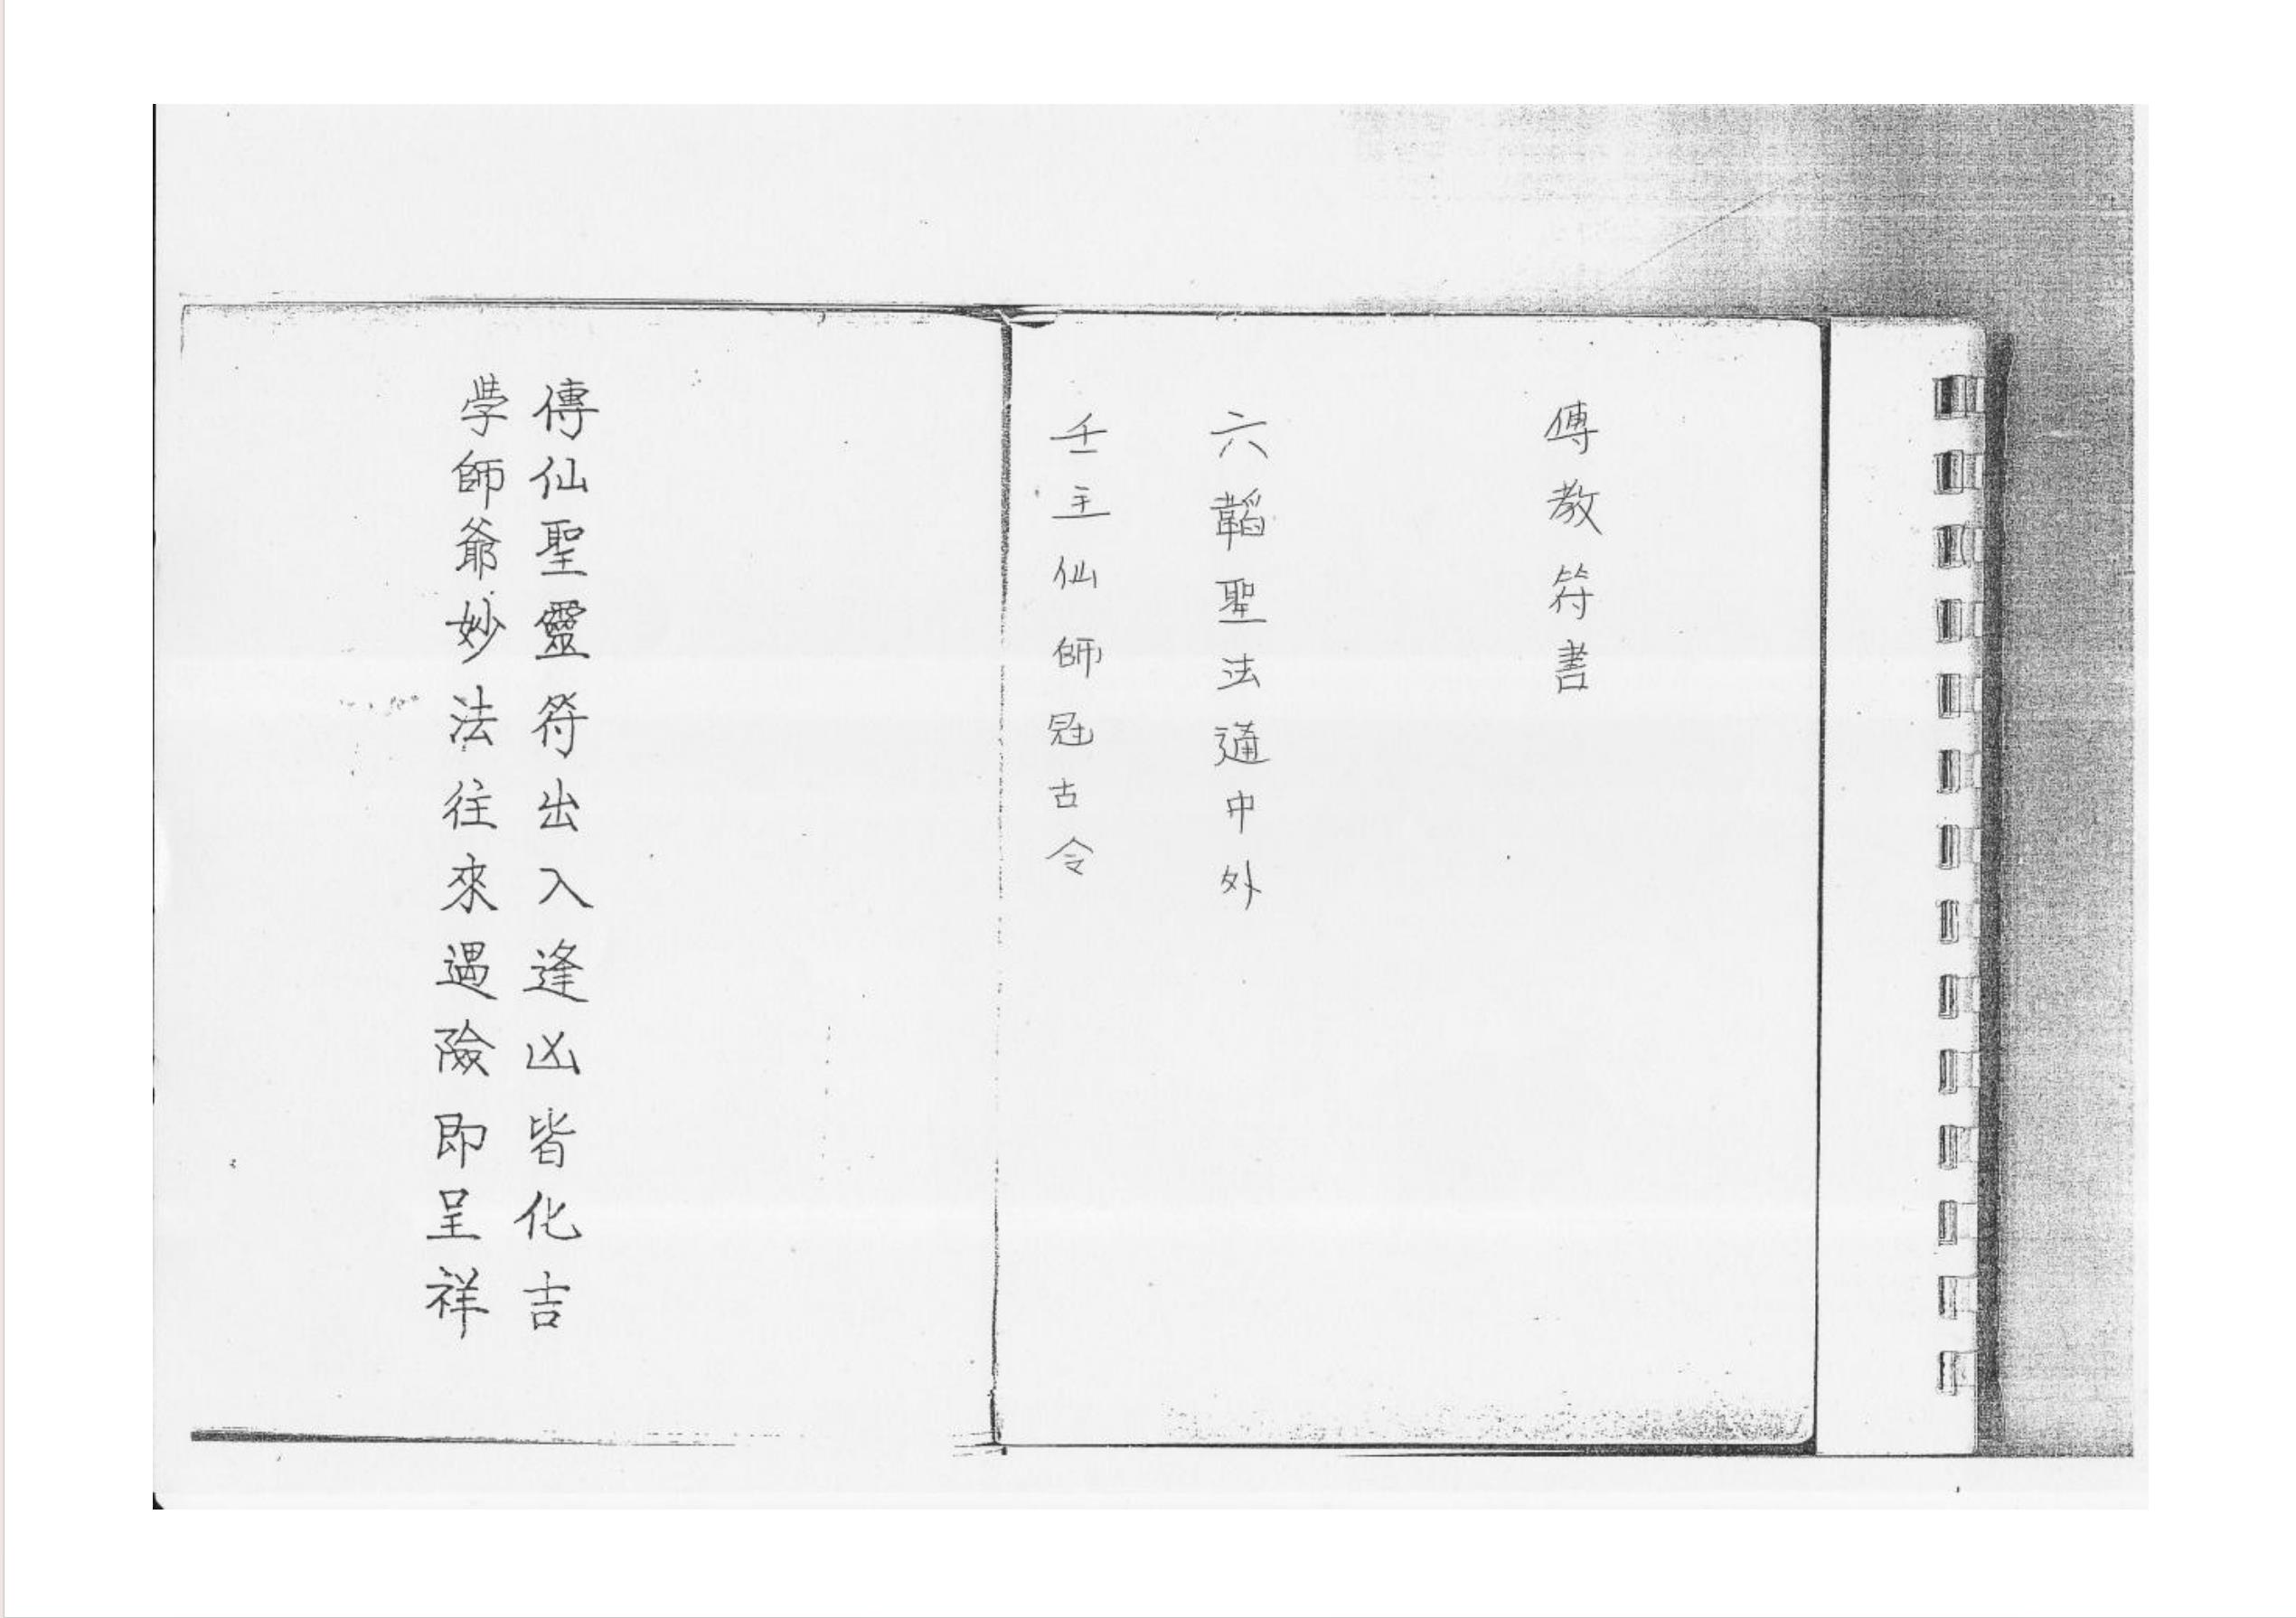 傳教符書
六韜聖法通中外
壬主仙師冠古今
傳仙聖靈符出入逢凶皆化吉
學師爺妙法往來遇險即呈祥